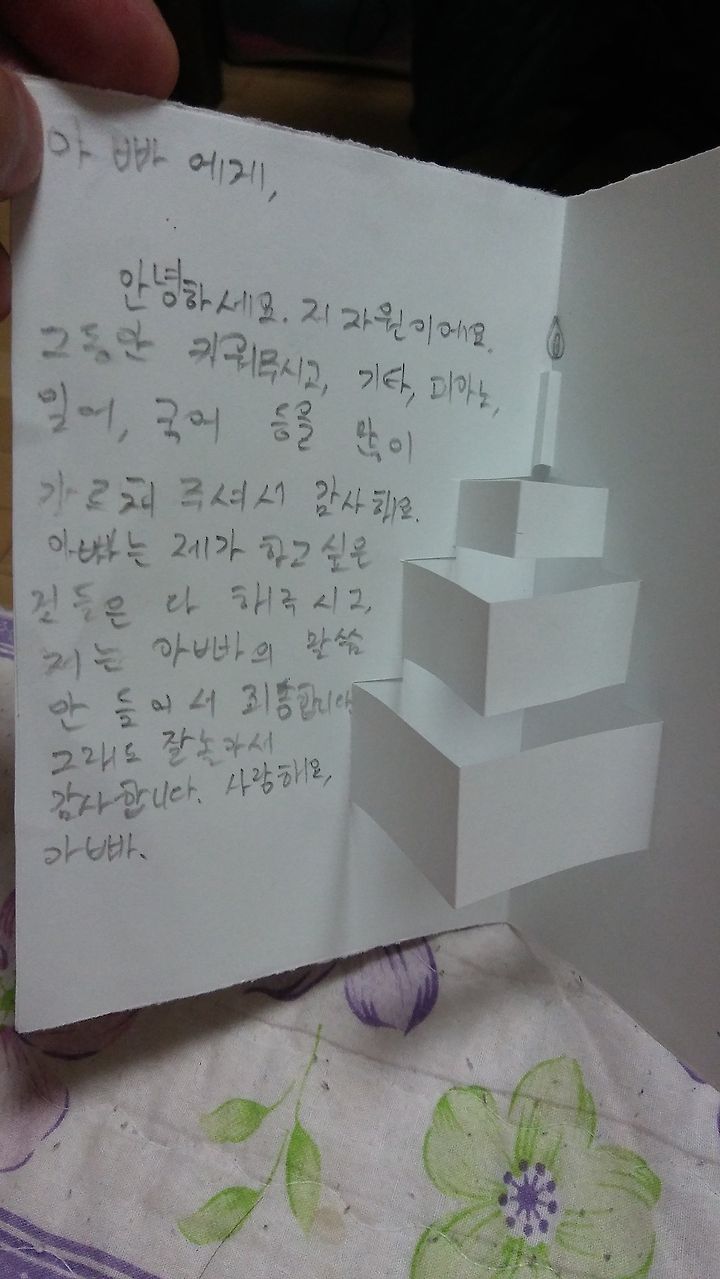 아빠에게,
안녕하세요. 저 자원이에요.
그동안 키워주시고, 기타, 피아노,
일어, 국어 등을 많이
가르쳐 주셔서 감사해요.
아빠는 제가 하고 싶은
것들은 다 해주시고,
저는 아빠의 말씀
안 들어서 죄송합니다
그래도 잘놀아줘서
감사합니다. 사랑해요,
아빠.